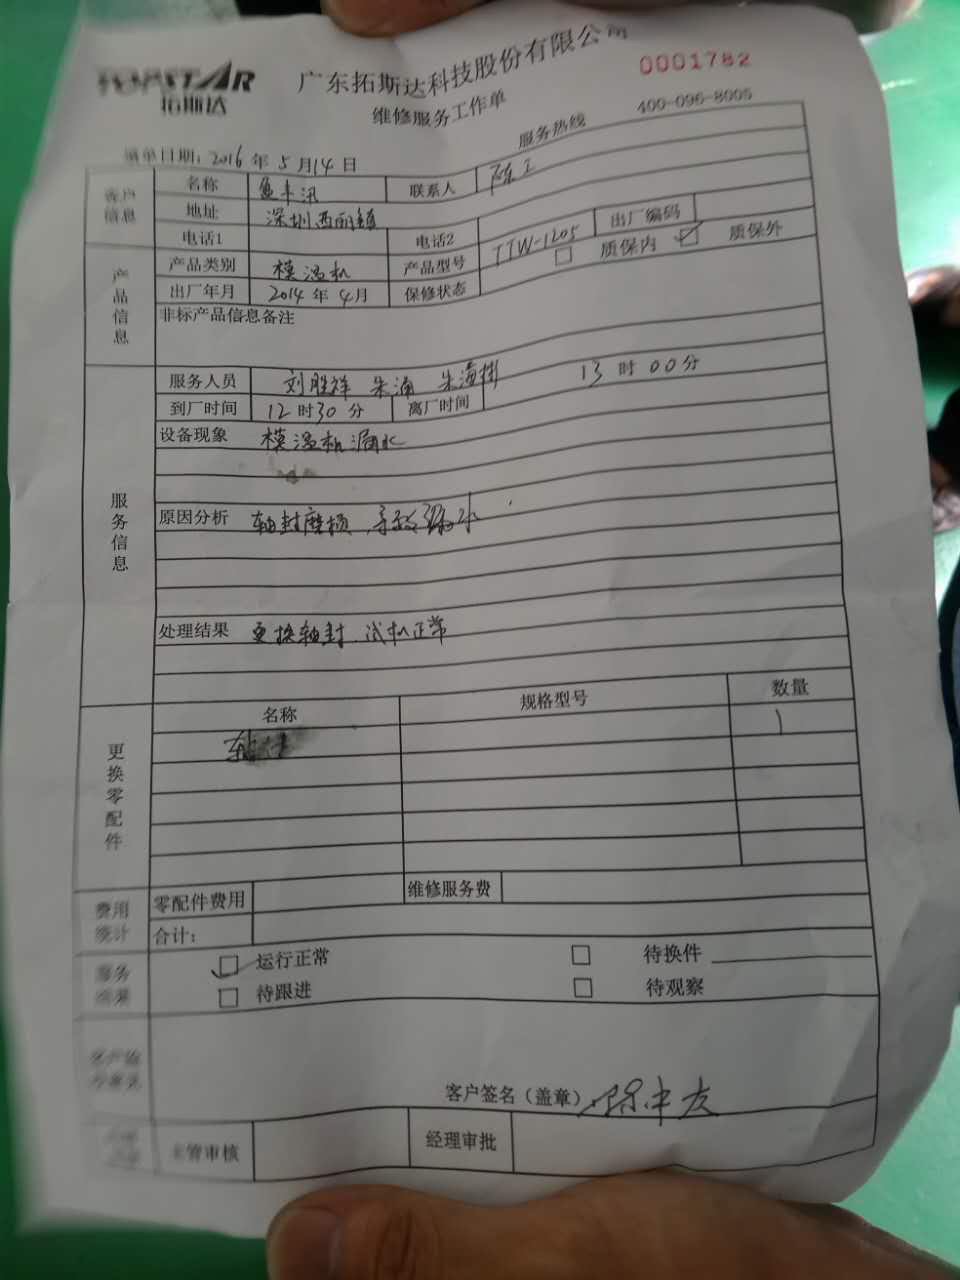 TOPSTAR
拓斯达
广东拓斯达科技股份有限公司
0001782
维修服务工作单
服务热线 400-096-8005
填单日期: 2016 年 5 月 14 日
客户信息
名称 鱼丰汛 联系人 陈工
地址 深圳西丽镇
电话1 电话2 出厂编码
产品信息
产品类别 模温机 产品型号 TTW-1205
出厂年月 2014 年 4 月 保修状态 质保内 质保外
非标产品信息备注
服务信息
服务人员 刘胜祥 朱涌
到厂时间 12 时 30 分 离厂时间 13 时 00 分
设备现象 模温机漏水
原因分析 轴封磨损,导致漏水
处理结果 更换轴封.试机正常
更换零配件
名称 规格型号 数量
轴封 1
费用统计
零配件费用 维修服务费
合计:
服务结果
运行正常 待换件
待跟进 待观察
客户签名(盖章)
主管审核 经理审批